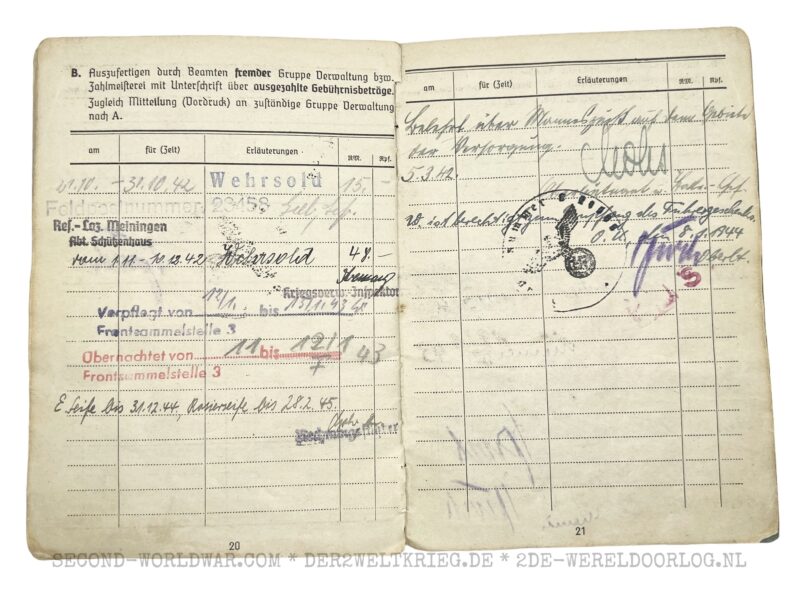 B. Auszufertigen durch Beamten fremder Gruppe Verwaltung bzw.
Zahlmeisterei mit Unterschrift über ausgezahlte Gebührnisbeträge.
Zugleich Mitteilung (Vordruck) an zuständige Gruppe Verwaltung
nach A.
am für (Zeit) Erläuterungen RM. Rpf.
21.10. – 31.10.42 Wehrsold 15.–
Feldpostnummer 23458
Res.-Laz. Meiningen
Abt. Schützenhaus
vom 1.11. - 10.12.42 Wehrsold 48.–
Kriegsverw.-Inspektor
Verpflegt von 12/1. bis 13/1.43
Frontsammelstelle 3
Übernachtet von 11 bis 12/1 43
Frontsammelstelle 3
E. Seife bis 31.12.44, Rasierseife bis 28.2.45.
20
am für (Zeit) Erläuterungen RM. Rpf.
Belehrt über Manneszucht auf dem Gebiete
der Versorgung.
5.3.42
W. ist berechtigt zum Empfang des Führergeschenks.
O.U. 8.1.1944
Oberlt.
21
SECOND-WORLDWAR.COM * DER2WELTKRIEG.DE * 2DE-WERELDOORLOG.NL